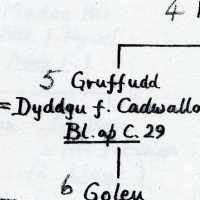 4
5 Gruffudd
= Dyddgu f. Cadwallo
Bl. ap C. 29
6 Goleu